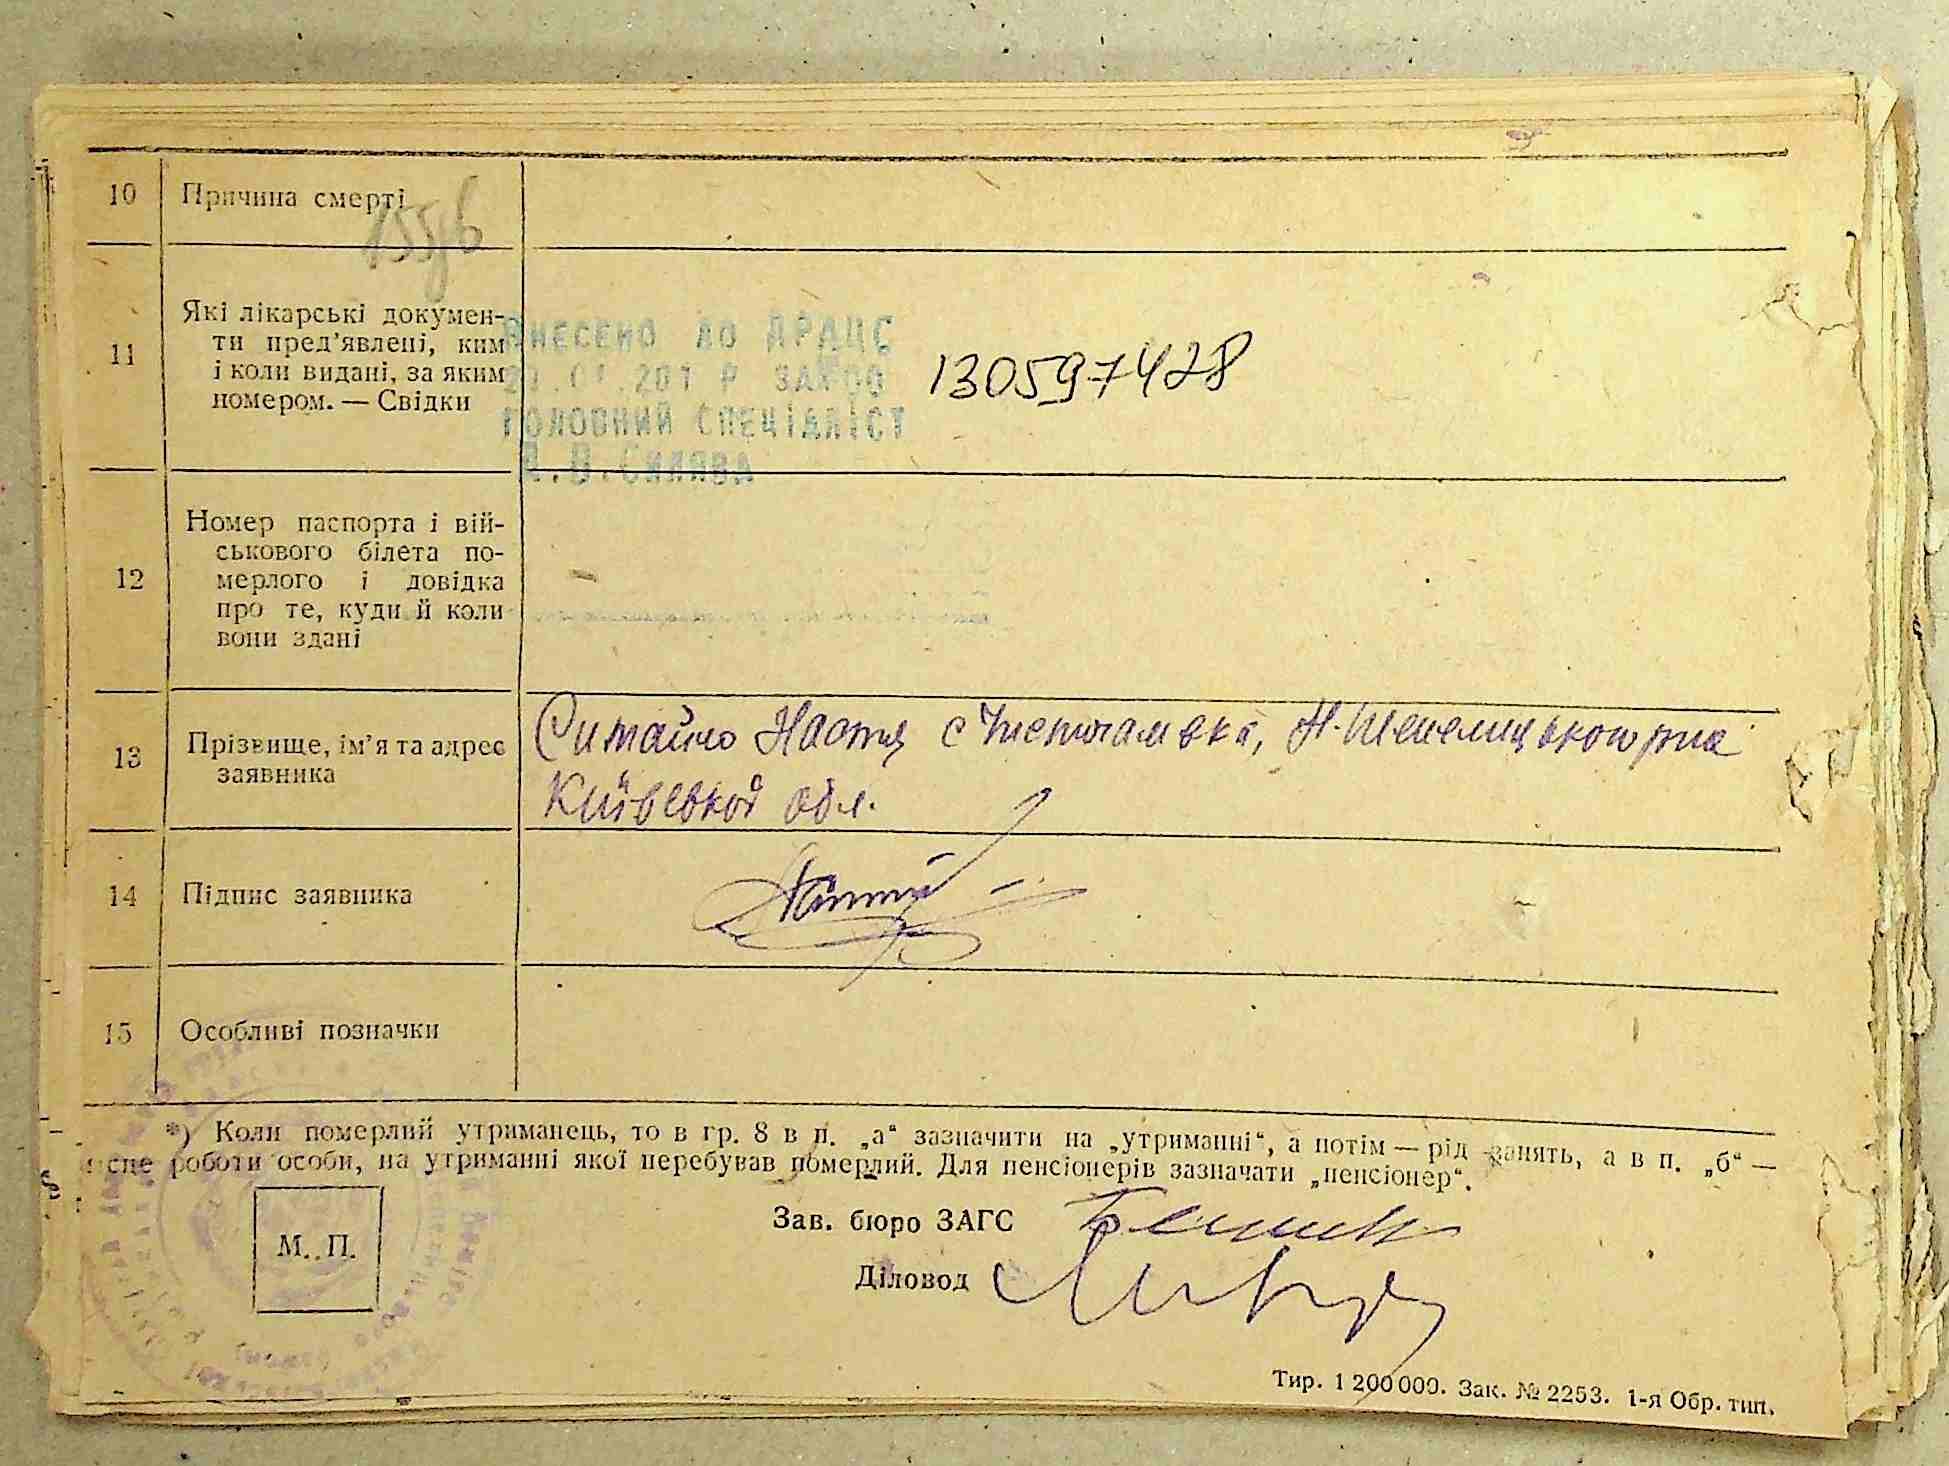 10 Причина смерті
155/б
11 Які лікарські докумен-
ти пред'явлені, ким
і коли видані, за яким
номером. — Свідки
ВНЕСЕНО ДО ДРАЦС
ГОЛОВНИЙ СПЕЦІАЛІСТ
130597428
12 Номер паспорта і вій-
ськового білета по-
мерлого і довідка
про те, куди й коли
вони здані
13 Прізвище, ім'я та адрес
заявника
Ситайло Настя с Чистогалівка, Н-Шепелицького р-на
Київської обл.
14 Підпис заявника
15 Особливі позначки
*) Коли померлий утриманець, то в гр. 8 в п. „а“ зазначити на „утриманні“, а потім — рід занять, а в п. „б“ —
місце роботи особи, на утриманні якої перебував померлий. Для пенсіонерів зазначати „пенсіонер“.
М. П.
Зав. бюро ЗАГС
Діловод
Тир. 1 200 000. Зак. № 2253. 1-я Обр. тип.